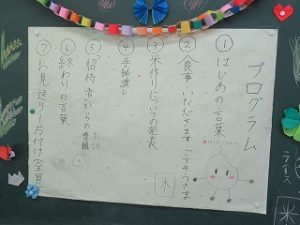 プログラム
①はじめの言葉
②会食(いただきます ごちそうさま)
③米作りについての発表
④手紙渡し
⑤招待者からの
⑥終わりの言葉
⑦お見送り 片付け(全員)
米
米